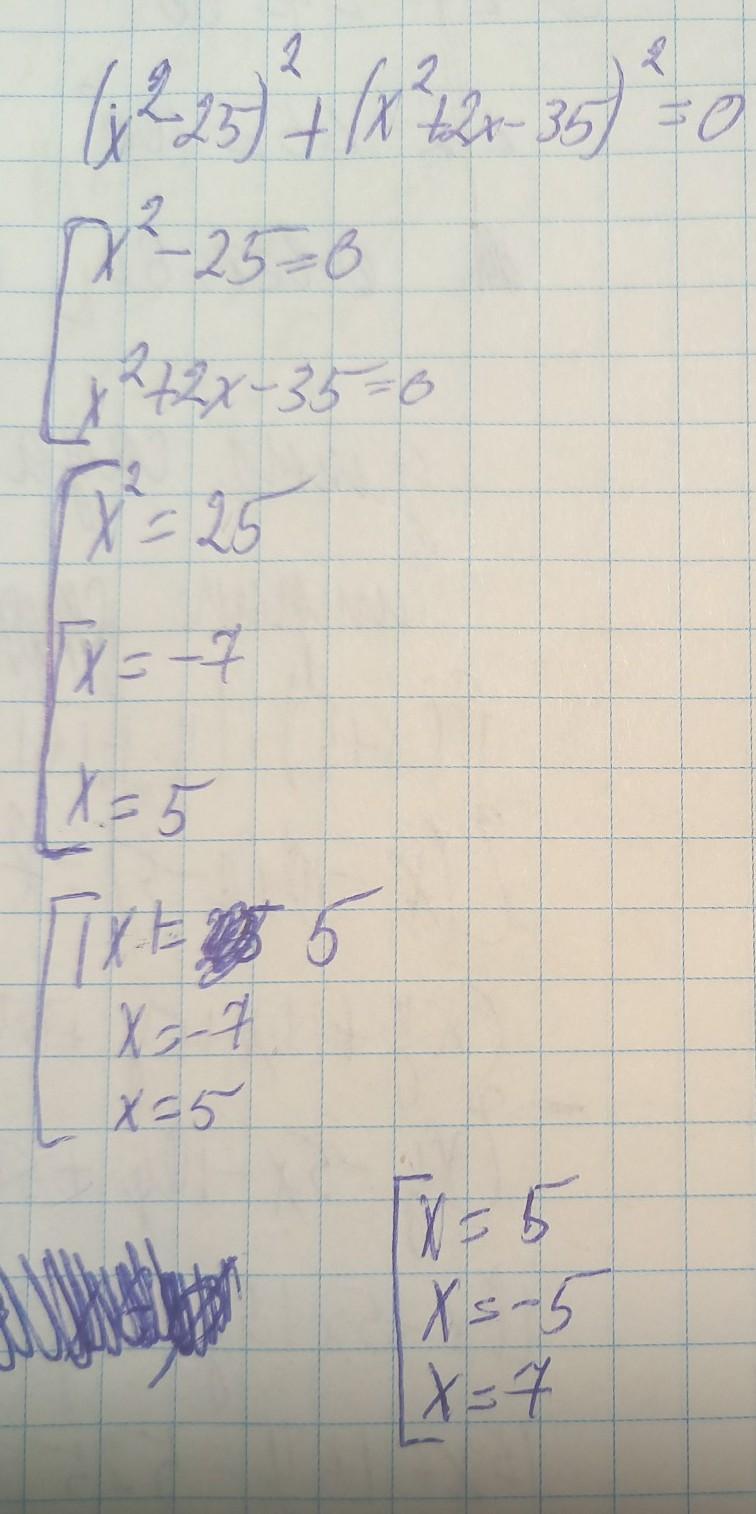 (x²-25)²+(x²+2x-35)²=0
x²-25=0
x²+2x-35=0
x²=25
x=-7
x=5
|x|=5
x=-7
x=5
x=5
x=-5
x=7